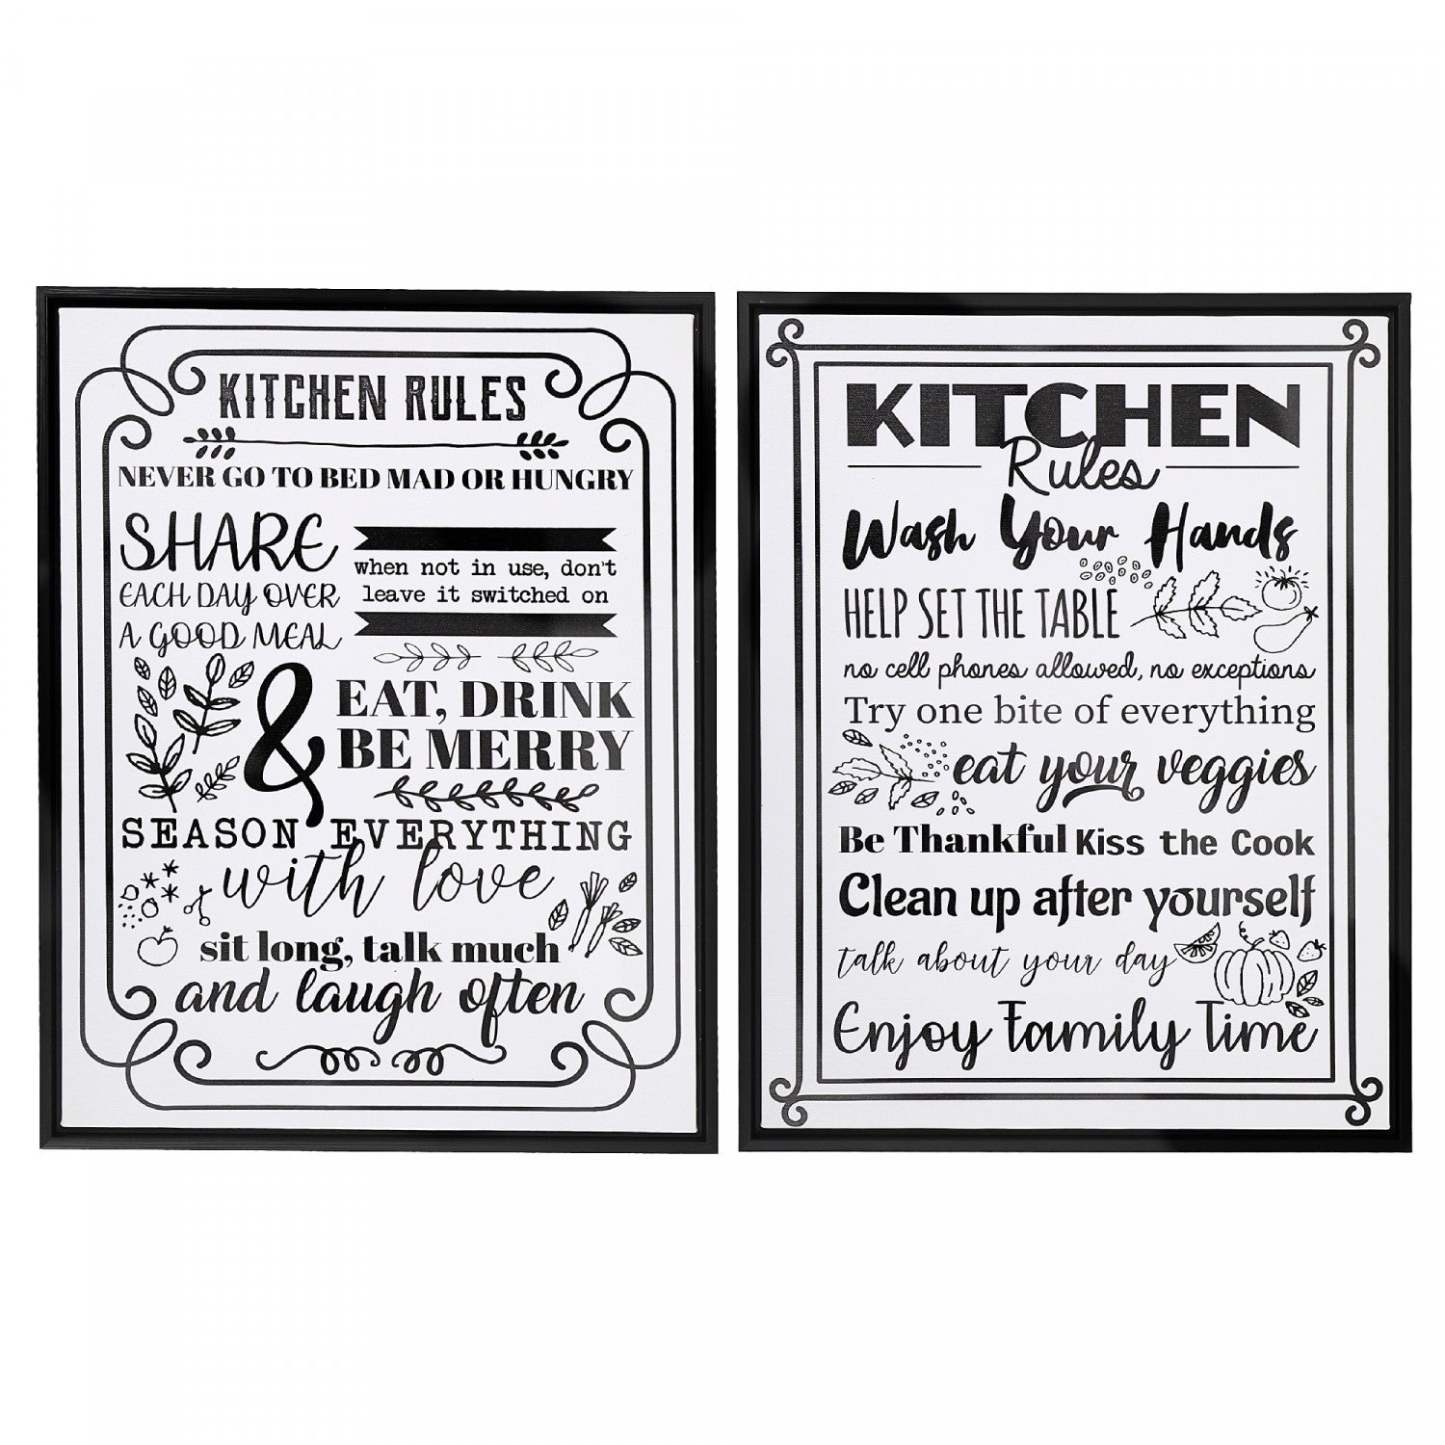 KITCHEN RULES
NEVER GO TO BED MAD OR HUNGRY
SHARE
EACH DAY OVER
A GOOD MEAL
when not in use, don't
leave it switched on
&
EAT, DRINK
BE MERRY
SEASON EVERYTHING
with love
sit long, talk much
and laugh often
KITCHEN
Rules
Wash Your Hands
HELP SET THE TABLE
no cell phones allowed, no exceptions
Try one bite of everything
eat your veggies
Be Thankful Kiss the Cook
Clean up after yourself
talk about your day
Enjoy Family Time